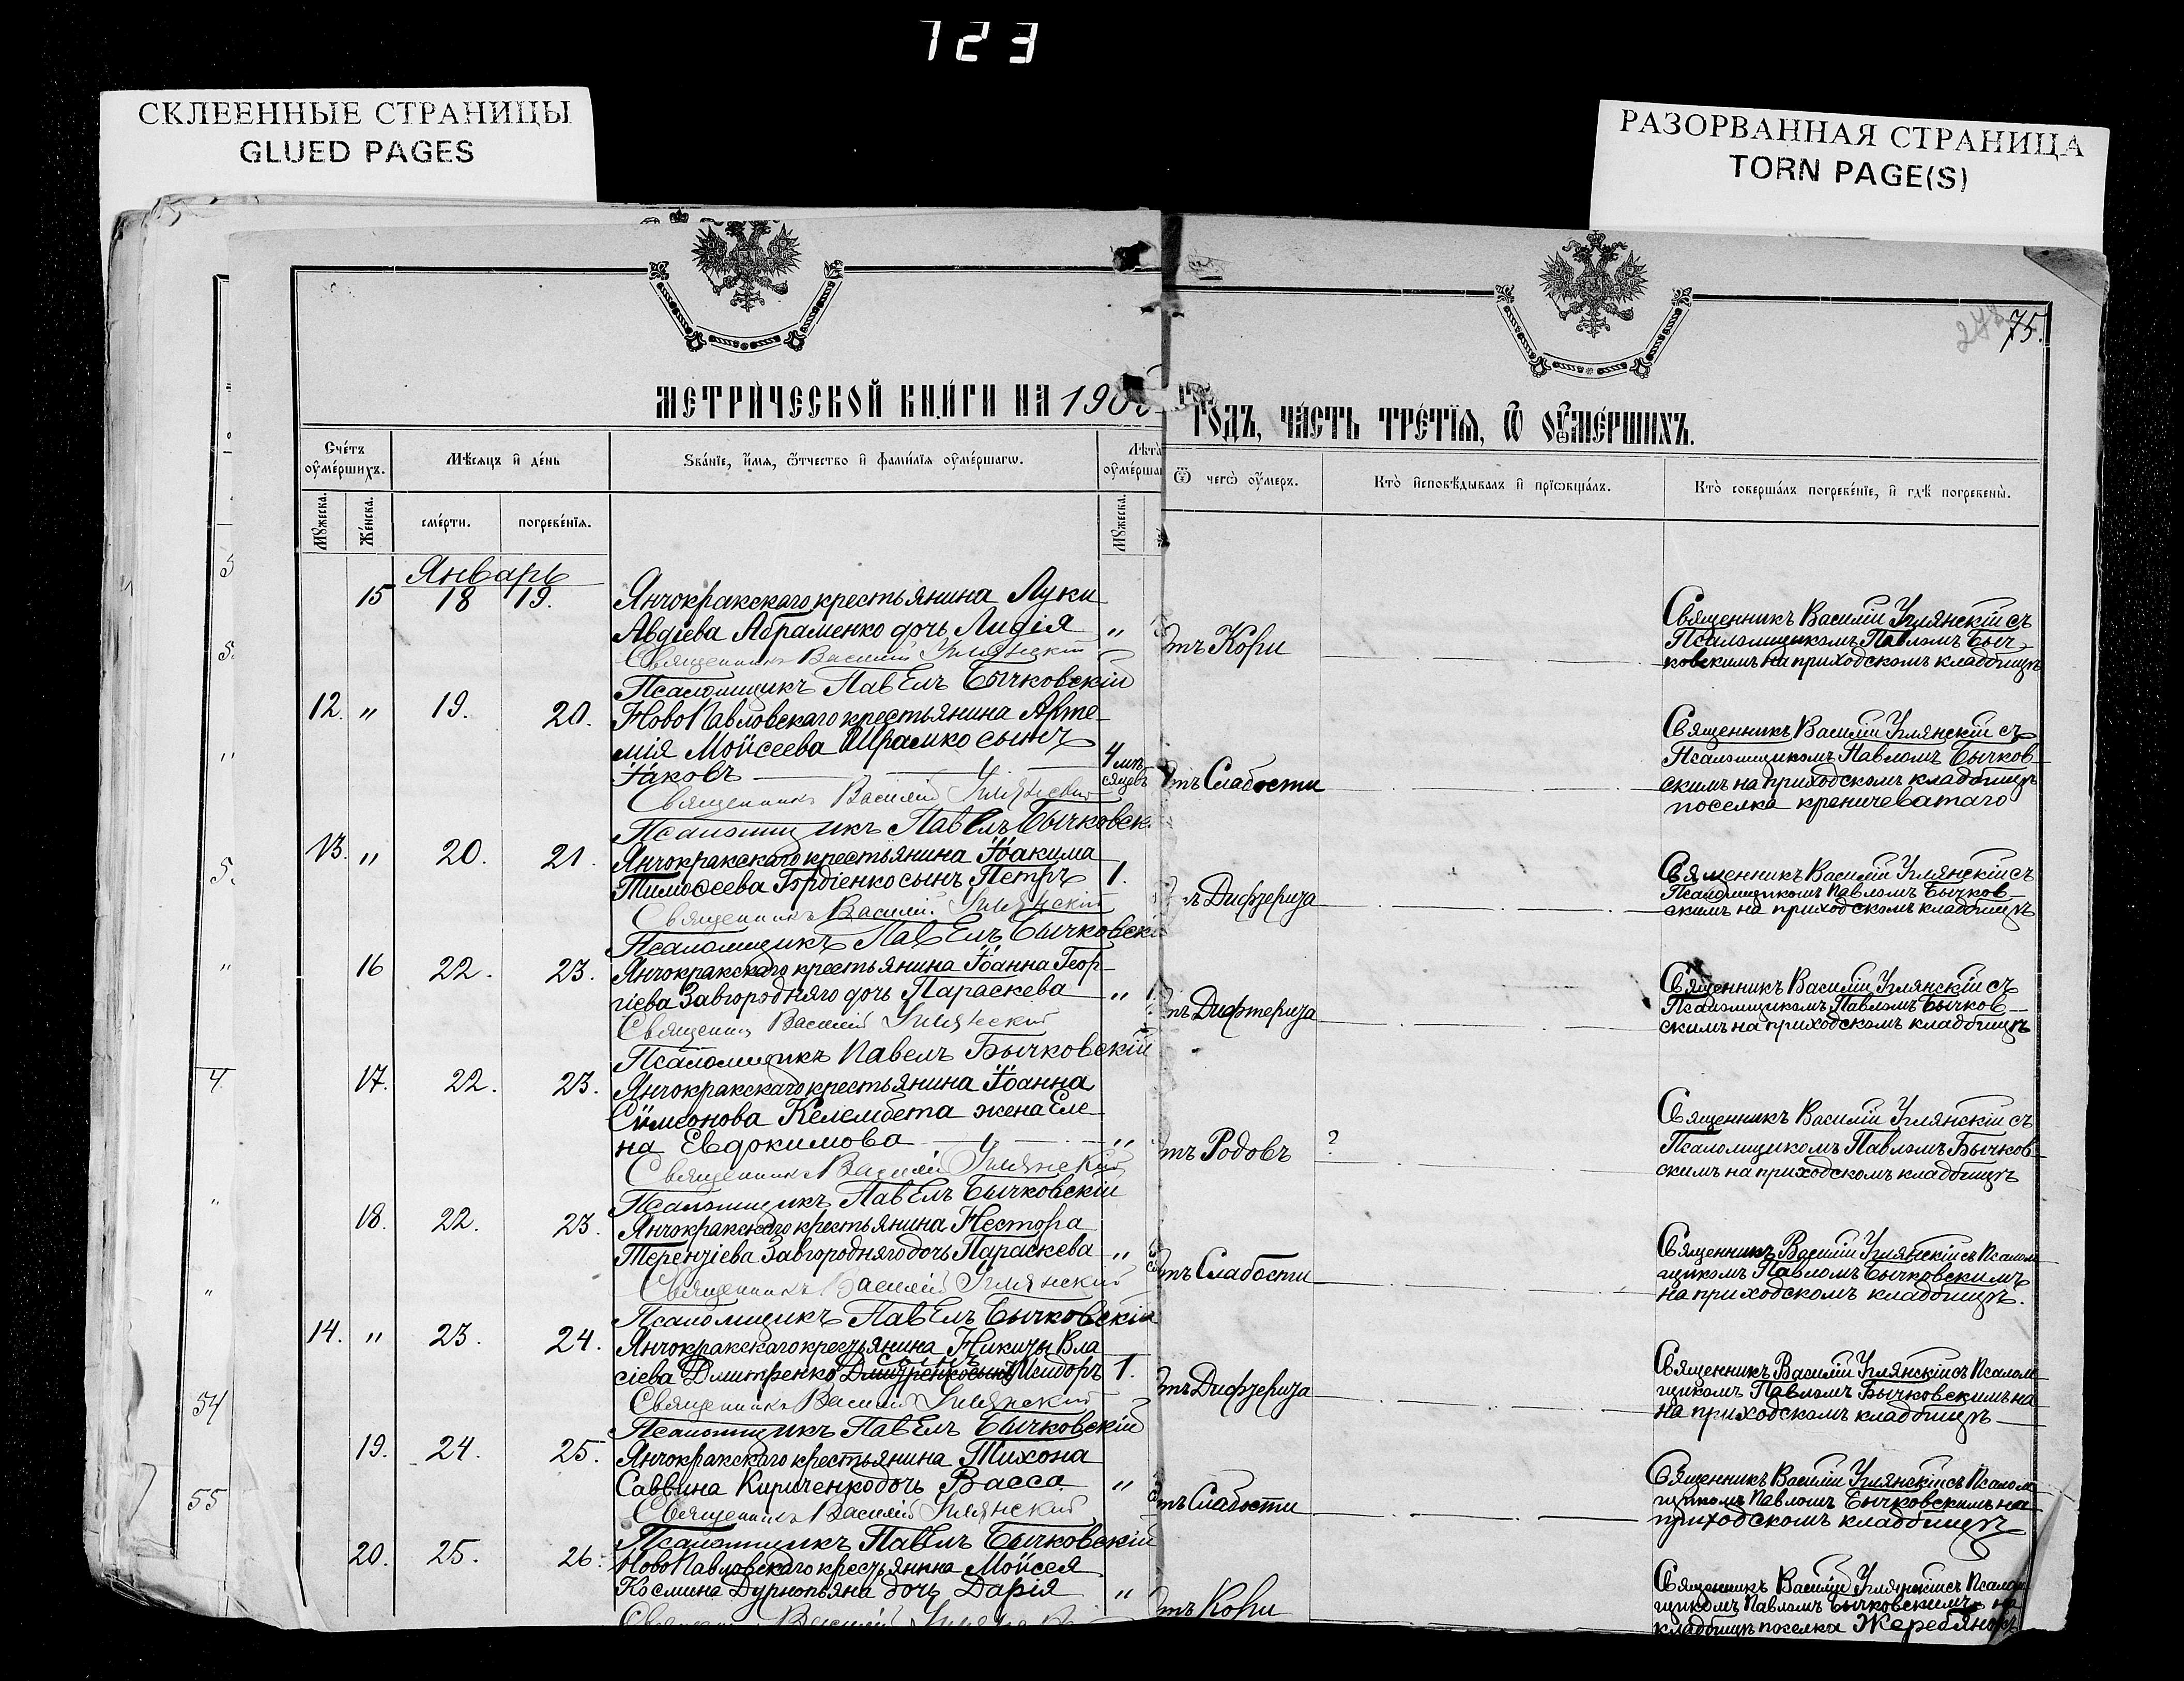 723
СКЛЕЕННЫЕ СТРАНИЦЫ
GLUED PAGES
РАЗОРВАННАЯ СТРАНИЦА
TORN PAGE(S)
75.
МЕТРИ́ЧЕСКОЙ КНИ́ГИ НА 190
ГОДЪ, ЧА́СТЬ ТРЕ́ТЇѦ, Ѿ ОУ҆МЕ́РШИХЪ.
Сче́тъ оу҆ме́ршихъ.
Мѣ́сѧцъ и҆ де́нь
Ѕва́нїе, и҆́мѧ, ѻ҆́тчество и҆ фами́лїѧ оу҆ме́ршагѡ.
Лѣ́та
Ѿ чегѡ̀ оу҆́меръ.
Кто̀ и҆сповѣ́дывалъ и҆ прїѡбща́лъ.
Кто̀ соверша́лъ погребе́нїе, и҆ гдѣ̀ погребены̀.
Мꙋ́жеска.
Же́нска.
сме́рти.
погребе́нїѧ.
Мꙋ́жеска.
Январь
15 18 19. Янчокракскаго крестьянина Луки
Авдіева Абраменко дочь Лидія „
отъ Кори
Священникъ Василій Углянскій
Псаломщикъ Павелъ Бычковскій
Священникъ Василій Углянскій съ
Псаломщикомъ Павломъ Быч-
ковскимъ на приходскомъ кладбищѣ
12. „ 19. 20. НовоПавловскаго крестьянина Арте-
мія Мойсеева Шрамко сынъ
Іаковъ
4 мѣ-
сяцевъ
отъ Слабости
Священникъ Василій Углянскій
Псаломщикъ Павелъ Бычковск
Священникъ Василій Углянскій съ
Псаломщикомъ Павломъ Бычков-
скимъ на приходскомъ кладбищѣ
поселка креничеватаго
13. „ 20. 21. Янчокракскаго крестьянина Іоакима
Тимоѳеева Гордіенко сынъ Петръ 1.
Дифтерита
Священникъ Василій Углянскій
Псаломщикъ Павелъ Бычковскі
Священникъ Василій Углянскій съ
Псаломщикомъ Павломъ Бычков-
скимъ на приходскомъ кладбищѣ
16 22. 23. Янчокракскаго крестьянина Іоанна Геор-
гіева Завгородняго дочь Параскева „
отъ Дифтерита
Василій Углянскій
Псаломщикъ Павелъ Бычковскій
Священникъ Василій Углянскій съ
Псаломщикомъ Павломъ Бычков-
скимъ на приходскомъ кладбищѣ
17. 22. 23. Янчокракскаго крестьянина Іоанна
Сѵмеонова Келембета жена Еле-
на Евдокимова „
отъ Родовъ ?
Священникъ Василій Углянскій
Псаломщикъ Павелъ Бычковскій
Священникъ Василій Углянскій съ
Псаломщикомъ Павломъ Бычков-
скимъ на приходскомъ кладбищѣ
18. 22. 23. Янчокракскаго крестьянина Нестора
Терентіева Завгородняго дочь Параскева „
отъ Слабости
Священникъ Василій Углянскій
Псаломщикъ Павелъ Бычковскій
Священникъ Василій Углянскій съ Псалом-
щикомъ Павломъ Бычковскимъ
на приходскомъ кладбищѣ.
14. „ 23. 24. Янчокракскаго крестьянина Никиты Вла
сіева Дмитренко сынъ Исидоръ 1.
отъ Дифтерита
Священникъ Василій Углянскій
Псаломщикъ Павелъ Бычковскій
Священникъ Василій Углянскій съ Псалом-
щикомъ Павломъ Бычковскимъ на
на приходскомъ кладбищѣ
19. 24. 25. Янчокракскаго крестьянина Тихона
Саввина Кириченко дочь Васса „
отъ Слабости
Священникъ Василій Углянскій
Псаломщикъ Павелъ Бычковскій
Священникъ Василій Углянскій съ Псалом-
щикомъ Павломъ Бычковскимъ на
приходскомъ кладбищѣ
20. 25. 26. НовоПавловскаго крестьянина Мойсея
Космина Дурнопьяна дочь Дарія „
отъ Кори
Священникъ Василій Углянскій съ Псалом-
щикомъ Павломъ Бычковскимъ на
кладбищѣ поселка